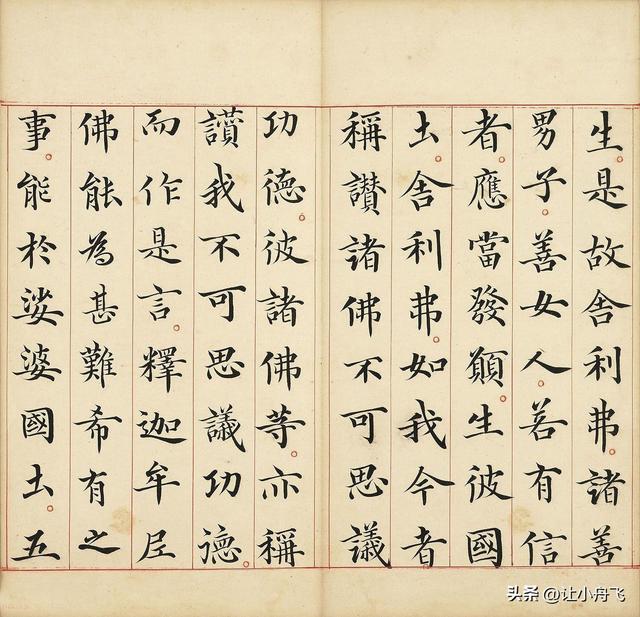 生是故舍利弗諸善
男子善女人若有信
者應當發願生彼國
土舍利弗如我今者
稱讃諸佛不可思議
功德彼諸佛等亦稱
讃我不可思議功德
而作是言釋迦牟尼
佛能為甚難希有之
事能於娑婆國土五
头条 @让小舟飞